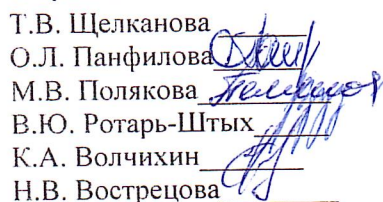 Т.В. Щелканова
О.Л. Панфилова
М.В. Полякова
В.Ю. Ротарь-Штых
К.А. Волчихин
Н.В. Вострецова